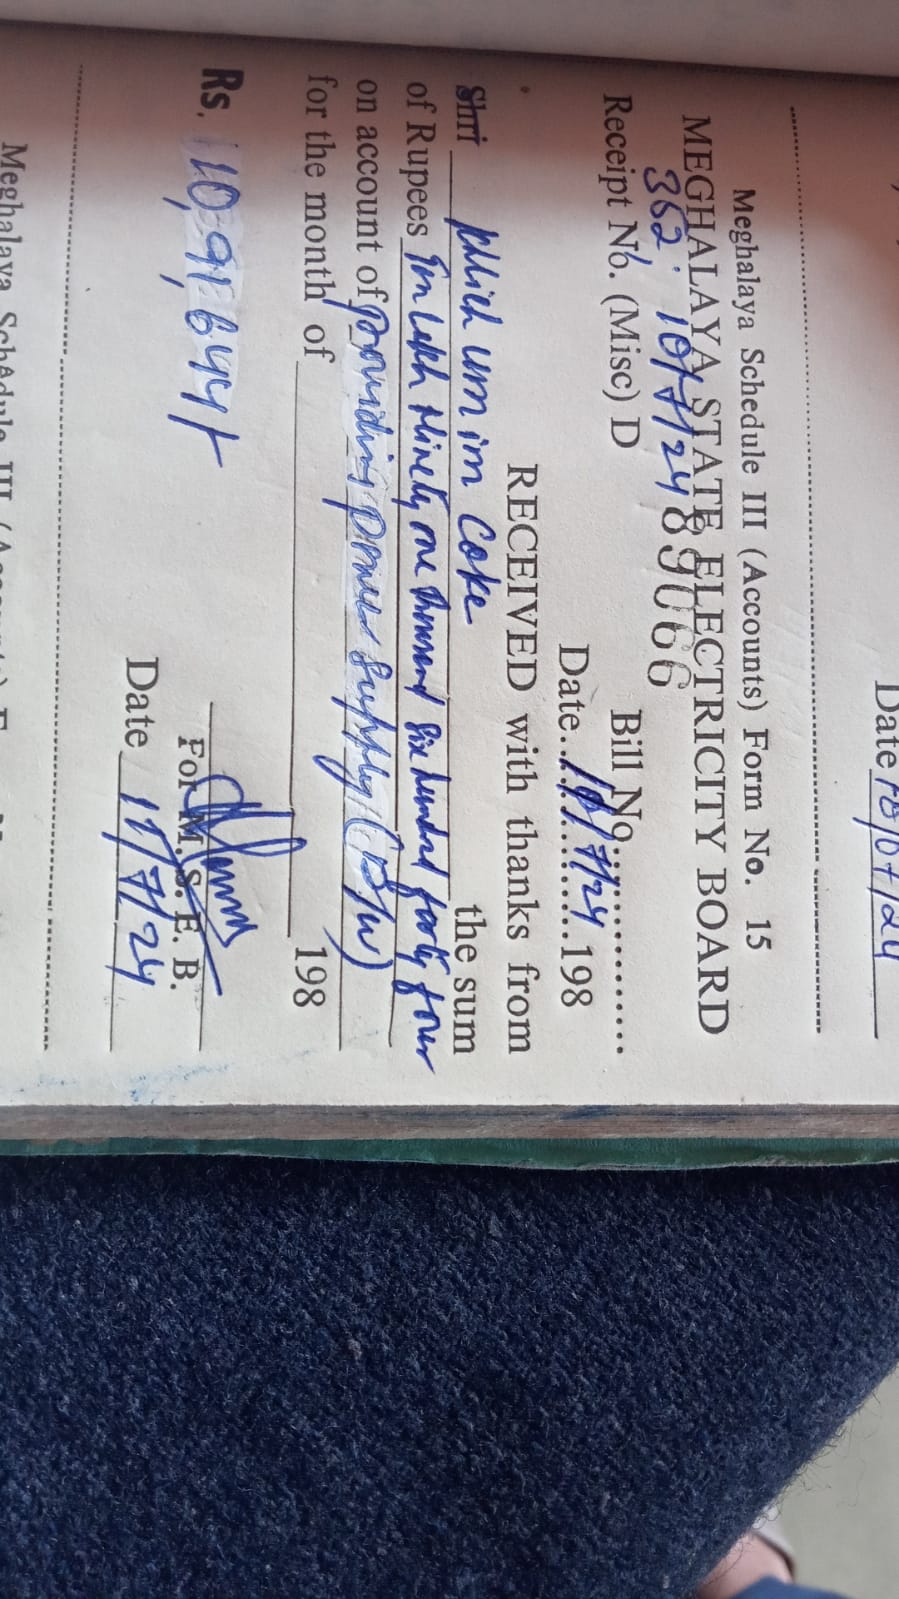 Date 10/07/24
Meghalaya Schedule III (Accounts) Form No. 15
MEGHALAYA STATE ELECTRICITY BOARD
362. 10/7/24 89066
Receipt No. (Misc) D Bill No.
Date 10/7/24 198
RECEIVED with thanks from
Shri coke the sum
of Rupees Ten Lakh Ninety one thousand Six hundred forty four
on account of providing Power Supply (D/W)
for the month of 198
Rs. 10,91,644/-
For M. S. E. B.
Date 11/7/24
Meghalaya Schedule III